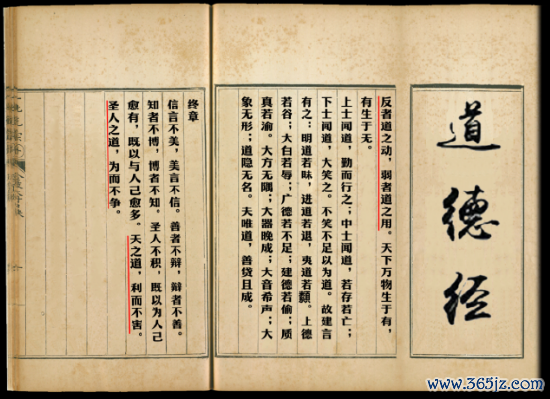 道德经
反者道之动，弱者道之用。天下万物生于有，
有生于无。
上士闻道，勤而行之；中士闻道，若存若亡；
下士闻道，大笑之。不笑不足以为道。故建言
有之：明道若昧，进道若退，夷道若纇。上德
若谷；大白若辱；广德若不足；建德若偷；质
真若渝。大方无隅；大器晚成；大音希声；大
象无形；道隐无名。夫唯道，善贷且成。
终章
信言不美，美言不信。善者不辩，辩者不善。
知者不博，博者不知，圣人不积，既以为人己
愈有，既以与人己愈多。天之道，利而不害。
圣人之道，为而不争。
www.365jz.com